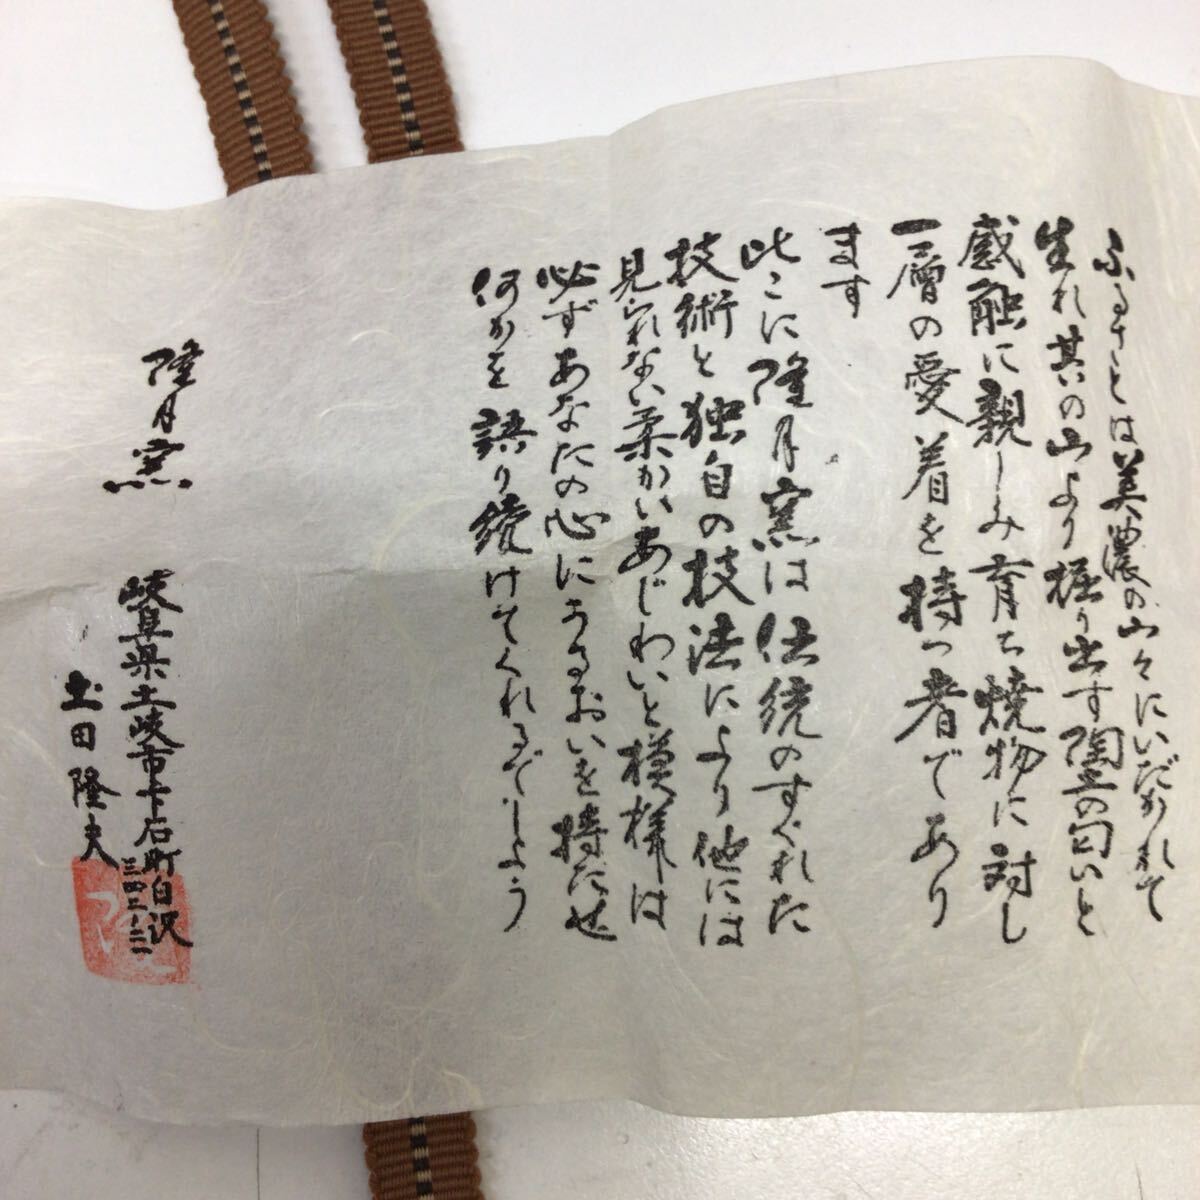 ふるさとは美濃の山々にいだかれて
生れ其いの山より掘り出す陶土の匂いと
感触に親しみ育ち焼物に対し
一層の愛着を持つ者であり
ます
此こに隆月窯は伝統のすぐれた
技術と独自の技法により他には
見られない柔かいあじわいと模様は
必ずあなたの心にうるおいを持たせ
何かを語り続けてくれるでしょう
隆月窯
岐阜県土岐市下石町白沢
三四二ー二二
土田隆夫